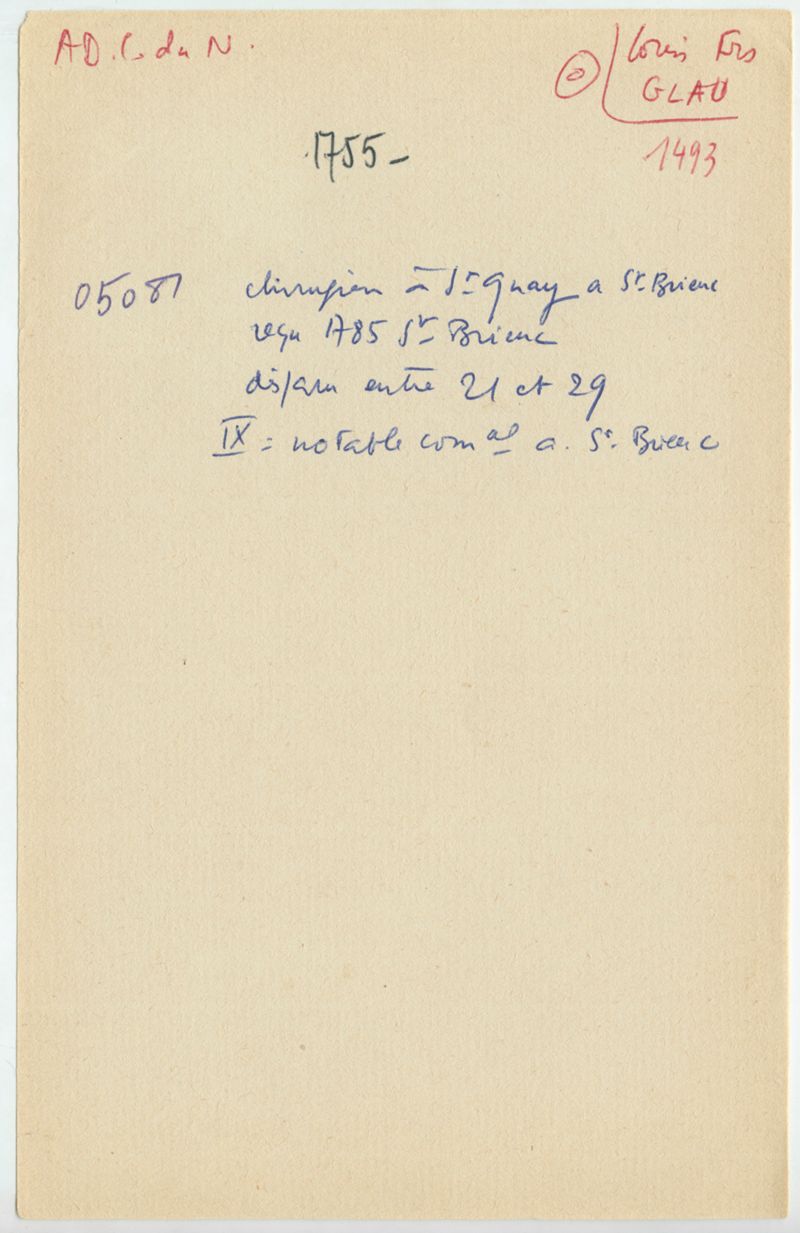 AD. C. du N.
Louis Frs
GLAU
1493
1755-
05081 chirurgien à St Quay a St. Brieuc
reçu 1785 St Brieuc
disparu entre 21 et 29
IX = notable com al a. St. Brieuc